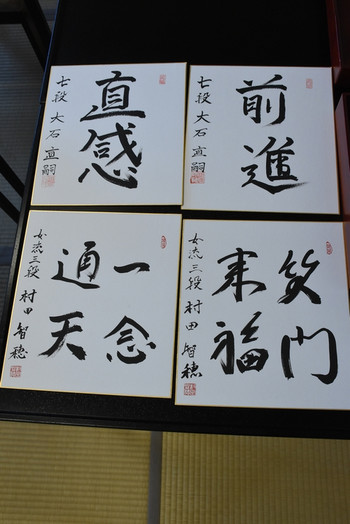 直感
七段 大石直嗣
前進
七段 大石直嗣
一念
通天
女流三段 村田智穂
笑門
来福
女流三段 村田智穂